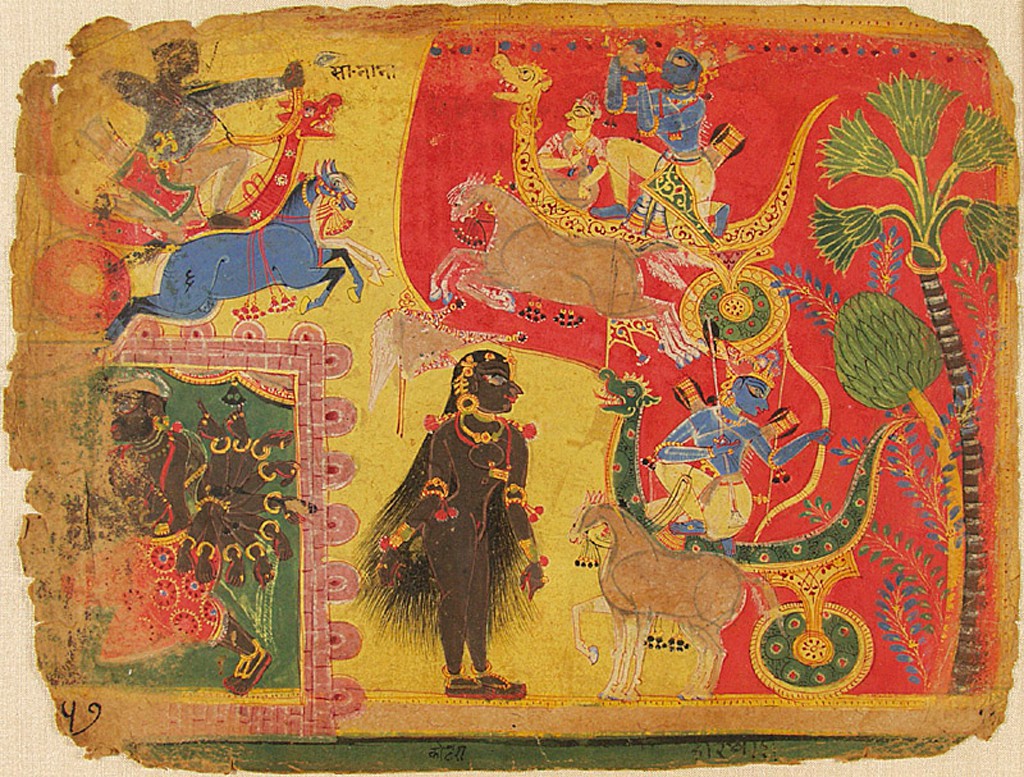 सा॰नाना
५७
कोटरा